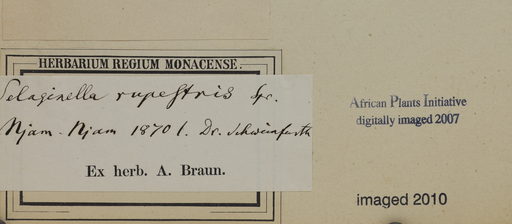 HERBARIUM REGIUM MONACENSE.
Selaginella rupestris Spr.
Njam-Njam 1870 l. Dr. Schweinfurth
Ex herb. A. Braun.
African Plants Initiative
digitally imaged 2007
imaged 2010